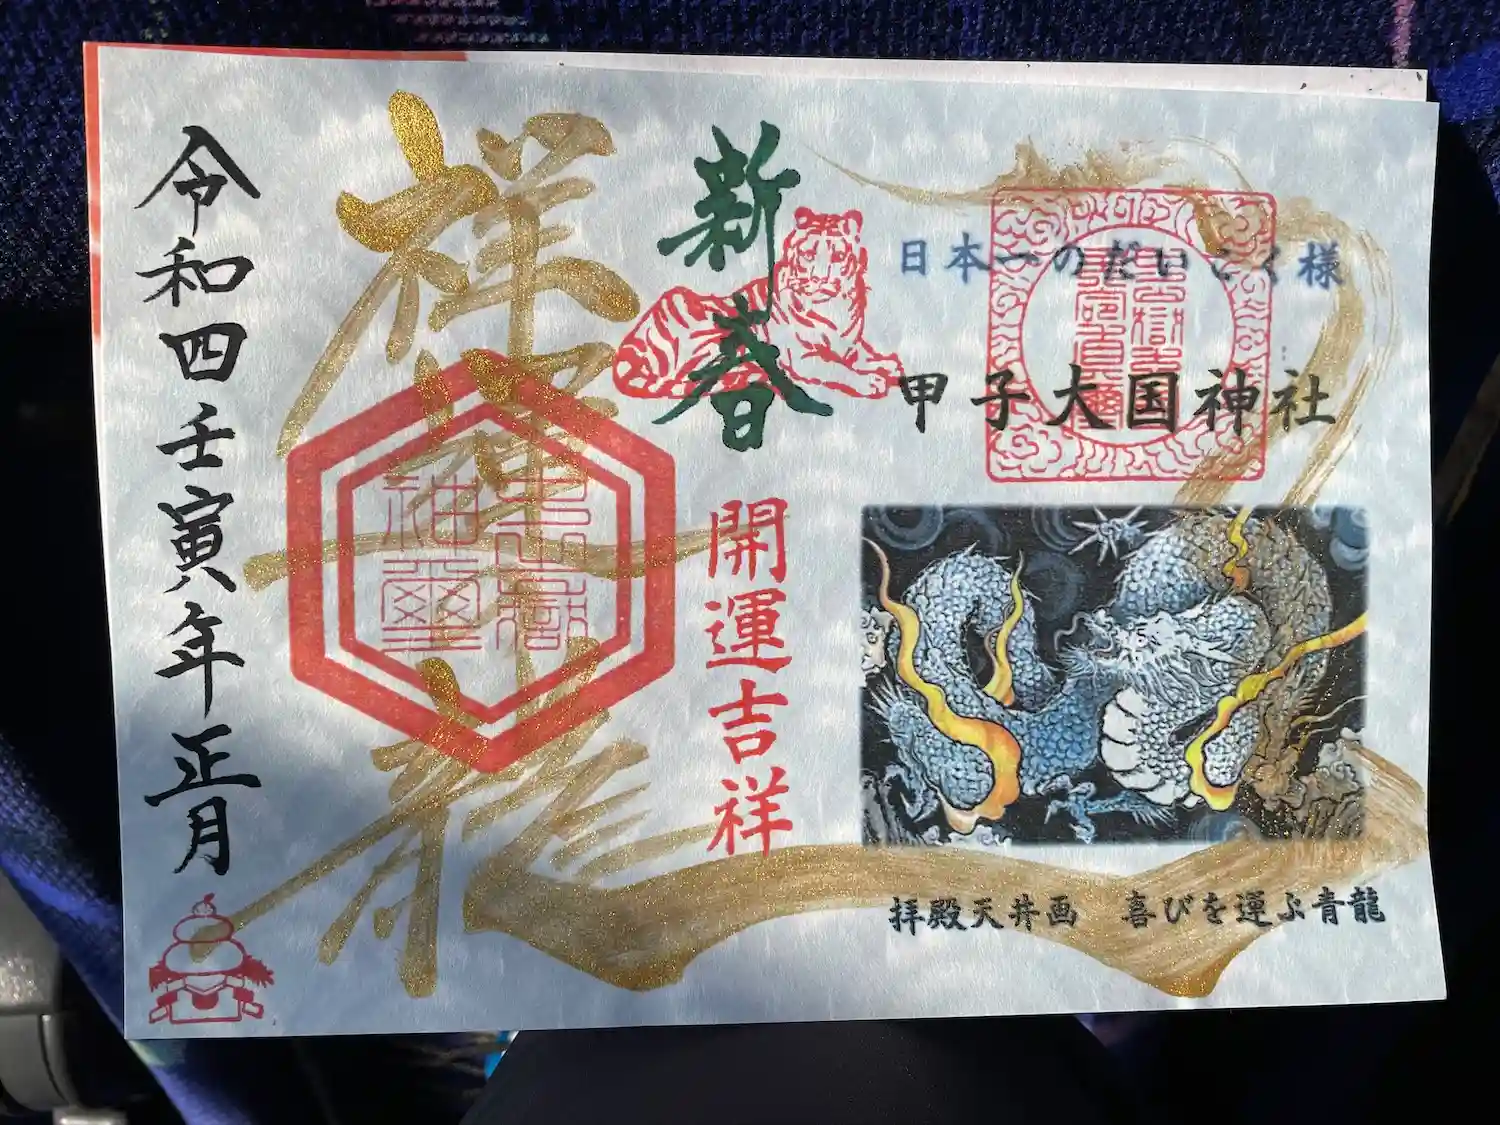 新春
日本一のだいこく様
甲子大国神社
開運吉祥
祥
龍
拝殿天井画 喜びを運ぶ青龍
令和四壬寅年正月